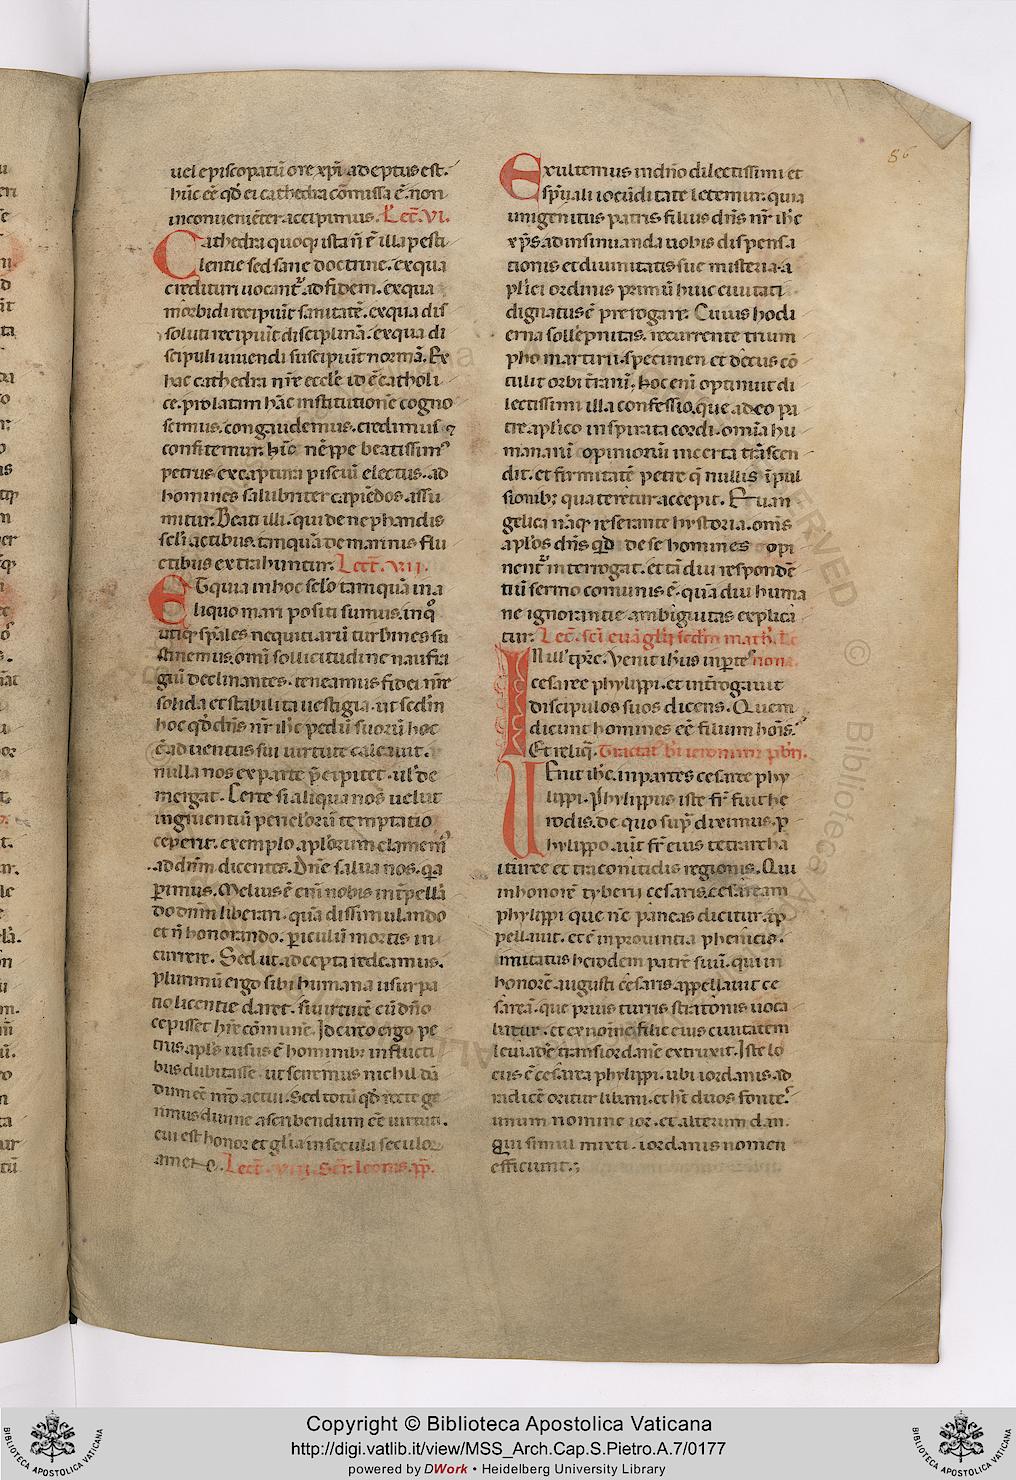 86
uel episcopatū ore xp̄i adeptus est.
hūc eē qđ ei cathedra cōmissa ē. non
inconueniēter accipimus. Lect̄. VI.
Cathedra quoq; ista n̄ ē illa pesti
lentie sed sane doctrine. ex qua
credituri uocant᷑ ad fidem. ex qua
morbidi recipiūt sanitatē. ex qua dis
soluti recipiūt disciplinā. ex qua di
scipuli uiuendi suscipiūt normā. Ex
hac cathedra nr̄e eccl̄e id ē catholi
ce. prolatam hāc institutionē cogno
scimus. congaudemus. credimus ⁊
confitemur. hīc nēpe beatissim᷒
petrus ex captura pisciū electus. ad
homines salubriter capiēdos. assu
mitur. Beati illi. qui de nephandis
sc̄li actibus. tanquā de marinis flu
ctibus extrahuntur. Lect̄. VII.
ET quia in hoc sc̄lo tamquā in a
liquo mari positi sumus. in q᷒
utiq; sp̄ales nequitiarū turbines su
stinemus. omī sollicitudine naufra
giū declinantes. teneamus fidei nr̄e
solida et stabilita uestigia. ut sc̄dm
hoc qđ dn̄s nr̄ ih̄c pedū suorū hoc
ē aduentus sui uirtute calcauit.
nulla nos ex parte p̄cipitet. ul̄ de
mergat. Certe si aliqua nos uelut
ingruentiū periclorū temptatio
ceperit. exemplo ap̄lorum clamem᷒
ad dn̄m dicentes. Dn̄e salua nos. q̄a
ꝑimus. Melius ē enī nobis int̄pella
do dn̄m liberari. quā dissimulando
et n̄ honorando. ꝑiculū mortis in
currere. Sed ut ad cepta redeamus.
plurimū ergo sibi humana usurpa
tio licentie daret. si uirtutē cū dn̄o
cepisset hr̄e cōmunē. Idcirco ergo pe
trus ap̄ls uisus ē hominib; in flucti
bus dubitasse. ut sciremus nichil dā
dum eē nr̄o actui. Sed totū qđ recte ge
rimus diuine ascribendum eē uirtuti.
cui est honor et gl̄ia in secula seculoꝝ
amen. Lect̄. VIII. Sēr. leonis. pp̄.
Exultemus in dn̄o dilectissimi et
sp̄uali iocūditate letemur. quia
unigenitus patris filius dn̄s nr̄ ih̄c
xp̄s. ad insinuanda nobis dispensa
tionis et diuinitatis sue misteria. a
pl̄ici ordinis primū huic ciuitati
dignatus ē prerogare. Cuius hodi
erna sollēpnitas. recurrente trium
pho martirii. specimen et decus cō
tulit orbi tr̄arū. hoc enī optinuit di
lectissimi illa confessio. que a deo pa
tre ap̄lico inspirata cordi. omīa hu
manarū opinionū incerta trāscen
dit. et firmitatē petre q̄ nullis īpul
sionib; quateretur accepit. Euan
gelica nāq; reserante hystoria. om̄s
ap̄los dn̄s qđ de se homines opi
nent᷑ interrogat. et tā diu respondē
tiū sermo comunis ē. quā diu huma
ne ignorantie ambiguitas explica
tur. Lec̄. sc̄i euāglii sc̄dm math̄. Lc̄
IN ill̄ tp̄re. Venit ih̄us in parte᷒ nona.
cesaree phylippi. et int̄rogauit
discipulos suos dicens. Quem
dicunt homines eē filium hoīs.?
Et reliq̄. Tractat᷒ bī ieronimi pb̄ri.
Uenit ih̄c. in partes cesaree phy
lippi. Phylippus iste fr̄ fuit he
rodis. de quo sup̄ diximus. p
hylippo. aūt fr̄ eius tetrarcha
ituree et traconitidis regionis. Qui
in honorē tyberii cesaris. cesaream
phylippi que nc̄ paneas dicitur. ap
pellauit. et ē in prouintia phenicis.
imitatus herodem patrē suū. qui in
honorē augusti cesaris appellauit ce
sareā. que prius turris stratonis uoca
batur. et ex noīne filie eius ciuitatem
leuiadē trans iordanē extruxit. Iste lo
cus ē cesarea phylippi. ubi iordanis ad
radicē oritur libani. et ht̄ duos fonte᷒.
unum nomine ior. et alterum dan.
qui simul mixti. iordanis nomen
efficiunt.;
Copyright © Biblioteca Apostolica Vaticana
http://digi.vatlib.it/view/MSS_Arch.Cap.S.Pietro.A.7/0177
powered by DWork • Heidelberg University Library